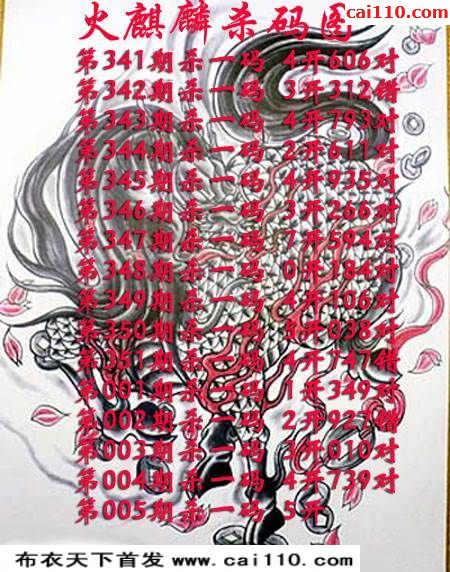 www.cai110.com
火麒麟杀码图
第341期杀一码 4开606对
第342期杀一码 3开312错
第343期杀一码 4开793对
第344期杀一码 2开611对
第345期杀一码 4开935对
第346期杀一码 3开266对
第347期杀一码 7开594对
第348期杀一码 0开184对
第349期杀一码 4开106对
第350期杀一码 5开038对
第351期杀一码 4开747错
第001期杀一码 1开349对
第002期杀一码 2开927错
第003期杀一码 3开010对
第004期杀一码 4开739对
第005期杀一码 5开
布衣天下首发 www.cai110.com